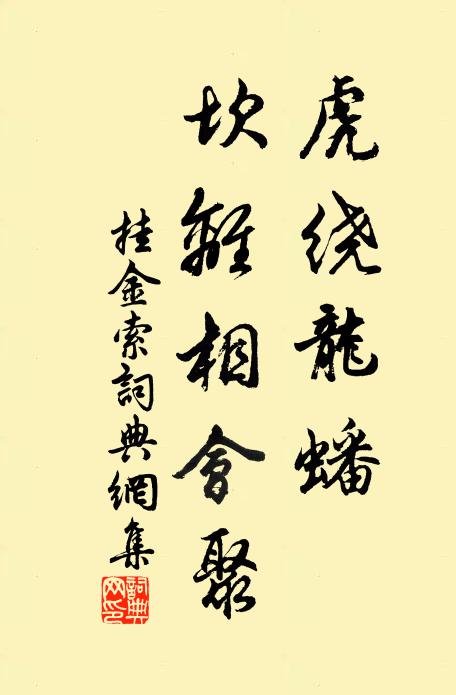 虎绕龍蟠
坎離相會聚
挂金索詞典網集
詞典网印